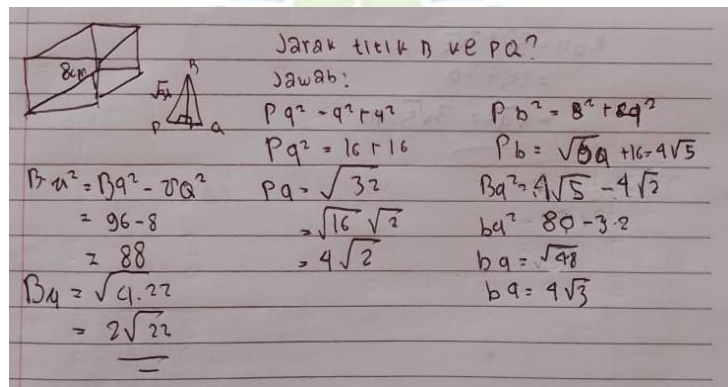 Jarak titik B ke PQ?
Jawab:
8cm
B
P
Q
Pq² = 4² + 4²
Pq² = 16 + 16
Pq = √32
= √16 √2
= 4√2
Pb² = 8² + 4²
Pb = √64 + 16 = 4√5
Bq² = 4√5 - 4√2
bq² - 80 - 3·2
bq = √48
bq = 4√3
Bu² = Bq² - UQ²
= 96 - 8
= 88
Bu = √4.22
= 2√22